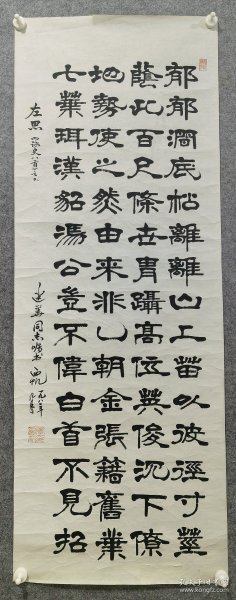 郁郁澗底松離離山上苗以彼徑寸莖
蔭此百尺條世胄躡高位英俊沉下僚
地勢使之然由來非一朝金張籍舊業
七葉珥漢貂馮公豈不偉白首不見招
左思 咏史八首之
同志嘱书 一九八 年